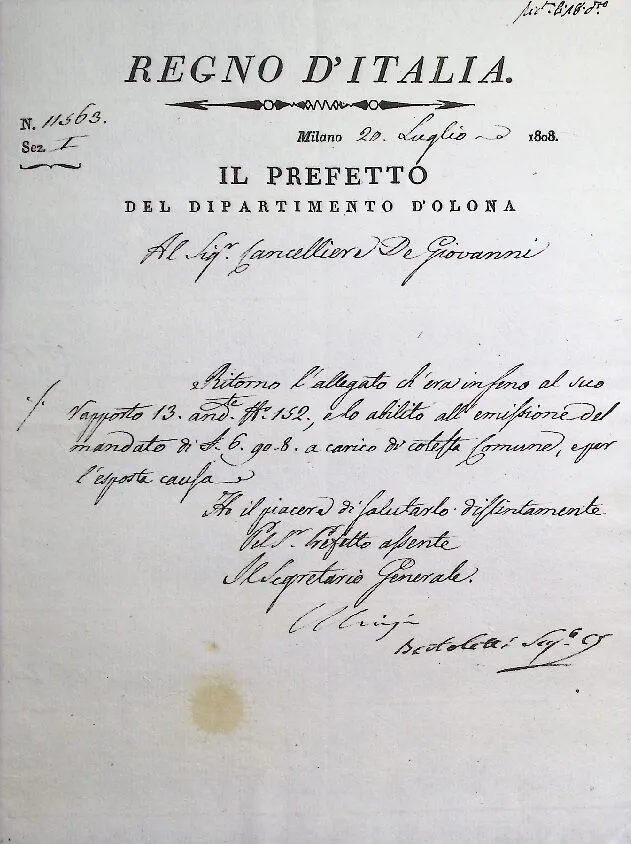 REGNO D'ITALIA.
N. 11563.
Sez. I
Milano 20. Luglio 1808.
IL PREFETTO
DEL DIPARTIMENTO D'OLONA
Al Sig.r Cancelliere De Giovanni
Ritorno l'allegato ch'era in seno al suo
rapporto 13. and.te N.o 152, e lo abilito all'emissione del
mandato di £. 6. 90. 8. a carico di cotesta Comune, e per
l'esposta causa
Ho il piacere di salutarlo distintamente
Pel S.r Prefetto assente
Il Segretario Generale.
Bertoletti Seg.o